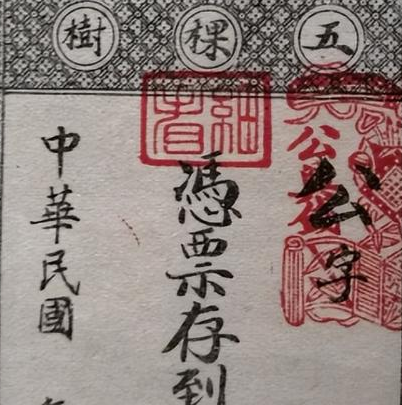 五棵樹
公字
憑票存到
中華民國